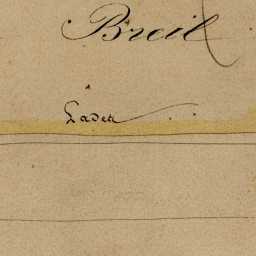 Breil
Laden